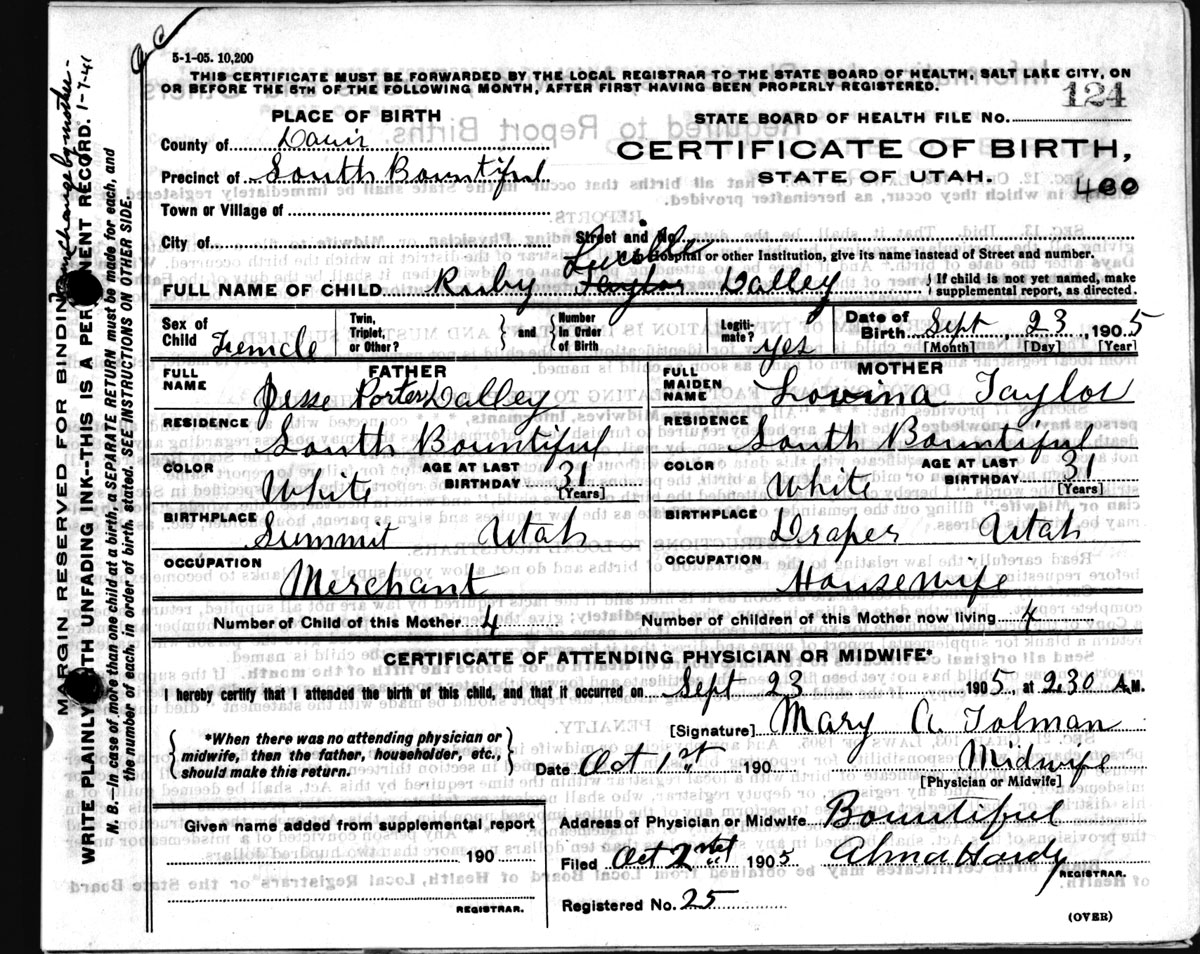 5-1-05. 10,200
THIS CERTIFICATE MUST BE FORWARDED BY THE LOCAL REGISTRAR TO THE STATE BOARD OF HEALTH, SALT LAKE CITY, ON
OR BEFORE THE 5TH OF THE FOLLOWING MONTH, AFTER FIRST HAVING BEEN PROPERLY REGISTERED.
124
PLACE OF BIRTH
STATE BOARD OF HEALTH FILE NO.
County of Davis
CERTIFICATE OF BIRTH,
Precinct of South Bountiful
STATE OF UTAH.
400
Town or Village of
City of
Street and No.
Hospital or other Institution, give its name instead of Street and number.
Lucille
FULL NAME OF CHILD Ruby Taylor Dalley
{ If child is not yet named, make
supplemental report, as directed.
Sex of Child Female
Twin, Triplet, or Other?
and
Number In Order of Birth
Legiti-mate? yes
Date of Birth Sept 23 1905
[Month] [Day] [Year]
FATHER
FULL NAME Jesse Porter Dalley
MOTHER
FULL MAIDEN NAME Lovina Taylor
RESIDENCE South Bountiful
RESIDENCE South Bountiful
COLOR White
AGE AT LAST BIRTHDAY 31 [Years]
COLOR White
AGE AT LAST BIRTHDAY 31 [Years]
BIRTHPLACE Summit Utah
BIRTHPLACE Draper Utah
OCCUPATION Merchant
OCCUPATION Housewife
Number of Child of this Mother 4
Number of children of this Mother now living 4
CERTIFICATE OF ATTENDING PHYSICIAN OR MIDWIFE*
I hereby certify that I attended the birth of this child, and that it occurred on Sept 23 1905, at 2.30 A.M.
*When there was no attending physician or
midwife, then the father, householder, etc.,
should make this return.
[Signature] Mary A. Tolman
Date Oct 1st 190
Midwife
[Physician or Midwife]
Given name added from supplemental report
190
REGISTRAR.
Address of Physician or Midwife Bountiful
Filed Oct 2nd 1905 Alma Hardy
REGISTRAR.
Registered No. 25
(OVER)
MARGIN RESERVED FOR BINDING
name change by mother - 1-7-41
WRITE PLAINLY WITH UNFADING INK--THIS IS A PERMANENT RECORD.
N. B.--In case of more than one child at a birth, a SEPARATE RETURN must be made for each, and
the number of each, in order of birth, stated. SEE INSTRUCTIONS ON OTHER SIDE.